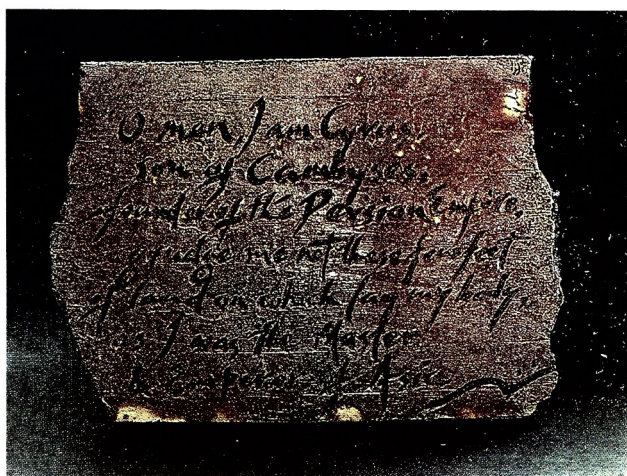 O man, I am Cyrus,
son of Cambyses,
founder of the Persian Empire,
grudge me not these few feet
of land on which lay my body,
as I was the Master
& Emperor of Asia